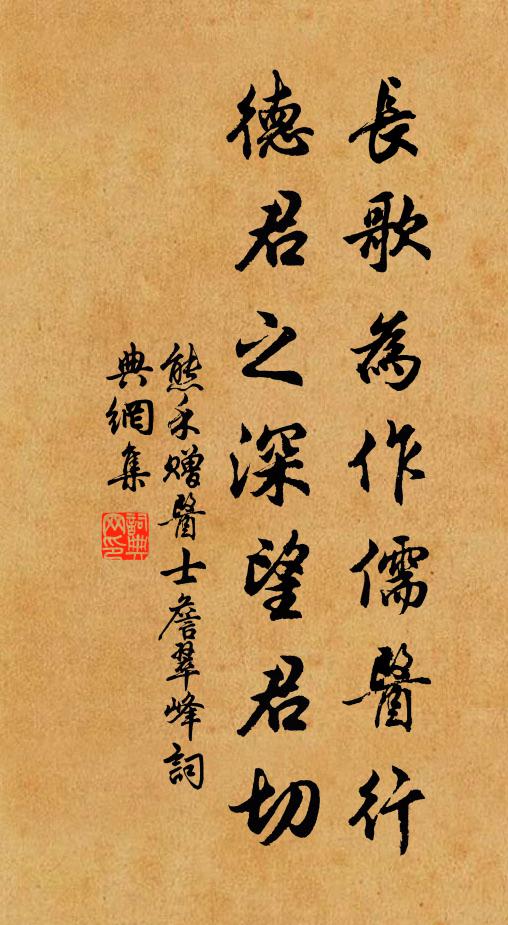 長歌為作儒醫行
德君之深望君切
熊禾贈醫士詹翠峰詞
典網集
詞典网印